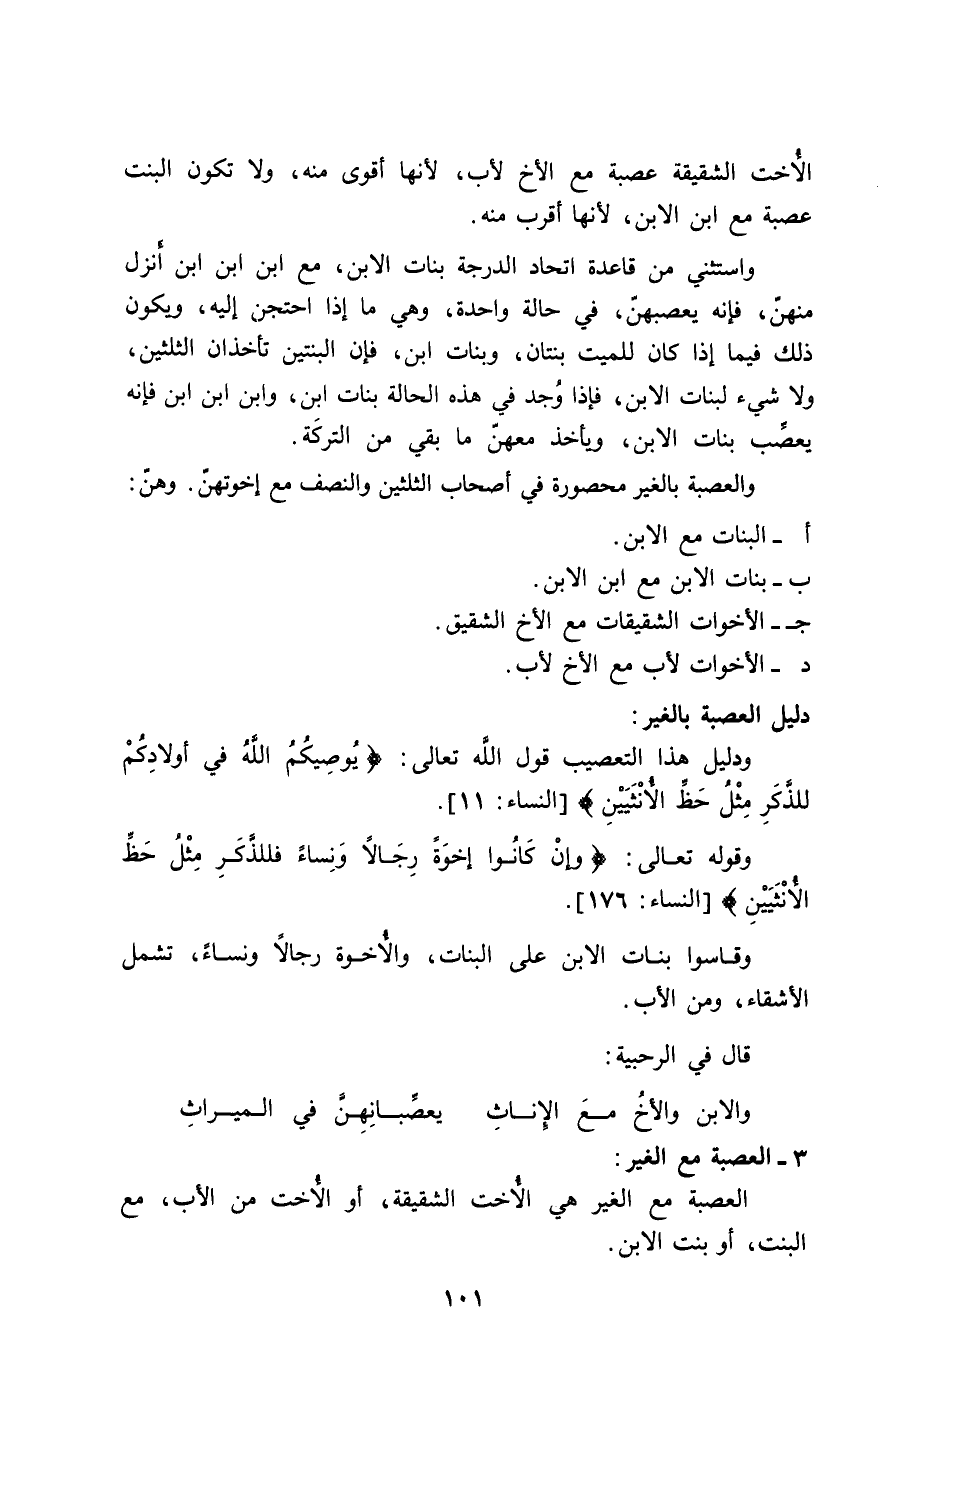 الأُخت الشقيقة عصبة مع الأخ لأب، لأنها أقوى منه، ولا تكون البنت
عصبة مع ابن الابن، لأنها أقرب منه.
واستثني من قاعدة اتحاد الدرجة بنات الابن، مع ابن ابن ابن أَنزل
منهنّ، فإنه يعصبهنّ، في حالة واحدة، وهي ما إذا احتجن إليه، ويكون
ذلك فيما إذا كان للميت بنتان، وبنات ابن، فإن البنتين تأخذان الثلثين،
ولا شيء لبنات الابن، فإذا وُجد في هذه الحالة بنات ابن، وابن ابن ابن فإنه
يعصِّب بنات الابن، ويأخذ معهنّ ما بقي من التركَة.
والعصبة بالغير محصورة في أصحاب الثلثين والنصف مع إخوتهنّ. وهنّ:
أ ـ البنات مع الابن.
ب ـ بنات الابن مع ابن الابن.
جـ ـ الأخوات الشقيقات مع الأخ الشقيق.
د ـ الأخوات لأب مع الأخ لأب.
دليل العصبة بالغير:
ودليل هذا التعصيب قول اللَّه تعالى: ﴿ يُوصِيكُمُ اللَّهُ في أولادِكُمْ
للذَّكَرِ مِثْلُ حَظِّ الأُنْثَيَيْنِ ﴾ [النساء: ١١].
وقوله تعـالى: ﴿ وإنْ كَانُـوا إخوَةً رِجَـالاً وَنِساءً فللذَّكَـرِ مِثْلُ حَظِّ
الأُنْثَيَيْنِ ﴾ [النساء: ١٧٦].
وقـاسوا بنـات الابن على البنات، والأُخـوة رجالاً ونسـاءً، تشمل
الأشقاء، ومن الأب.
قال في الرحبية:
والابن والأخُ مـعَ الإنـاثِ يعصِّبـانِهـنَّ في الـميـراثِ
٣ ـ العصبة مع الغير:
العصبة مع الغير هي الأُخت الشقيقة، أو الأُخت من الأب، مع
البنت، أو بنت الابن.
١٠١